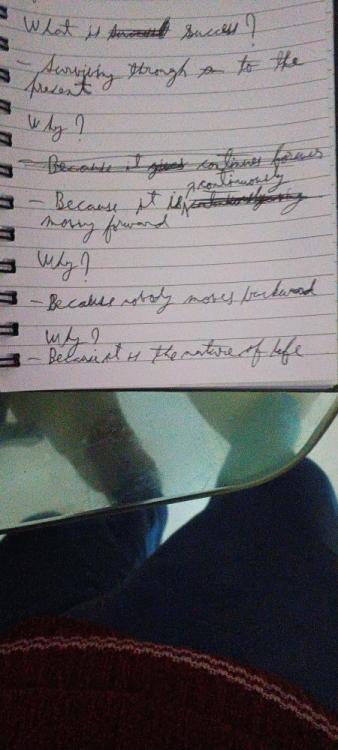 What is success?
- Surviving through to the
present
Why?
- Because it gives continues focus
continuously
- Because it is
moving forward
Why?
- Because nobody moves backward
Why?
- Because it is the nature of life